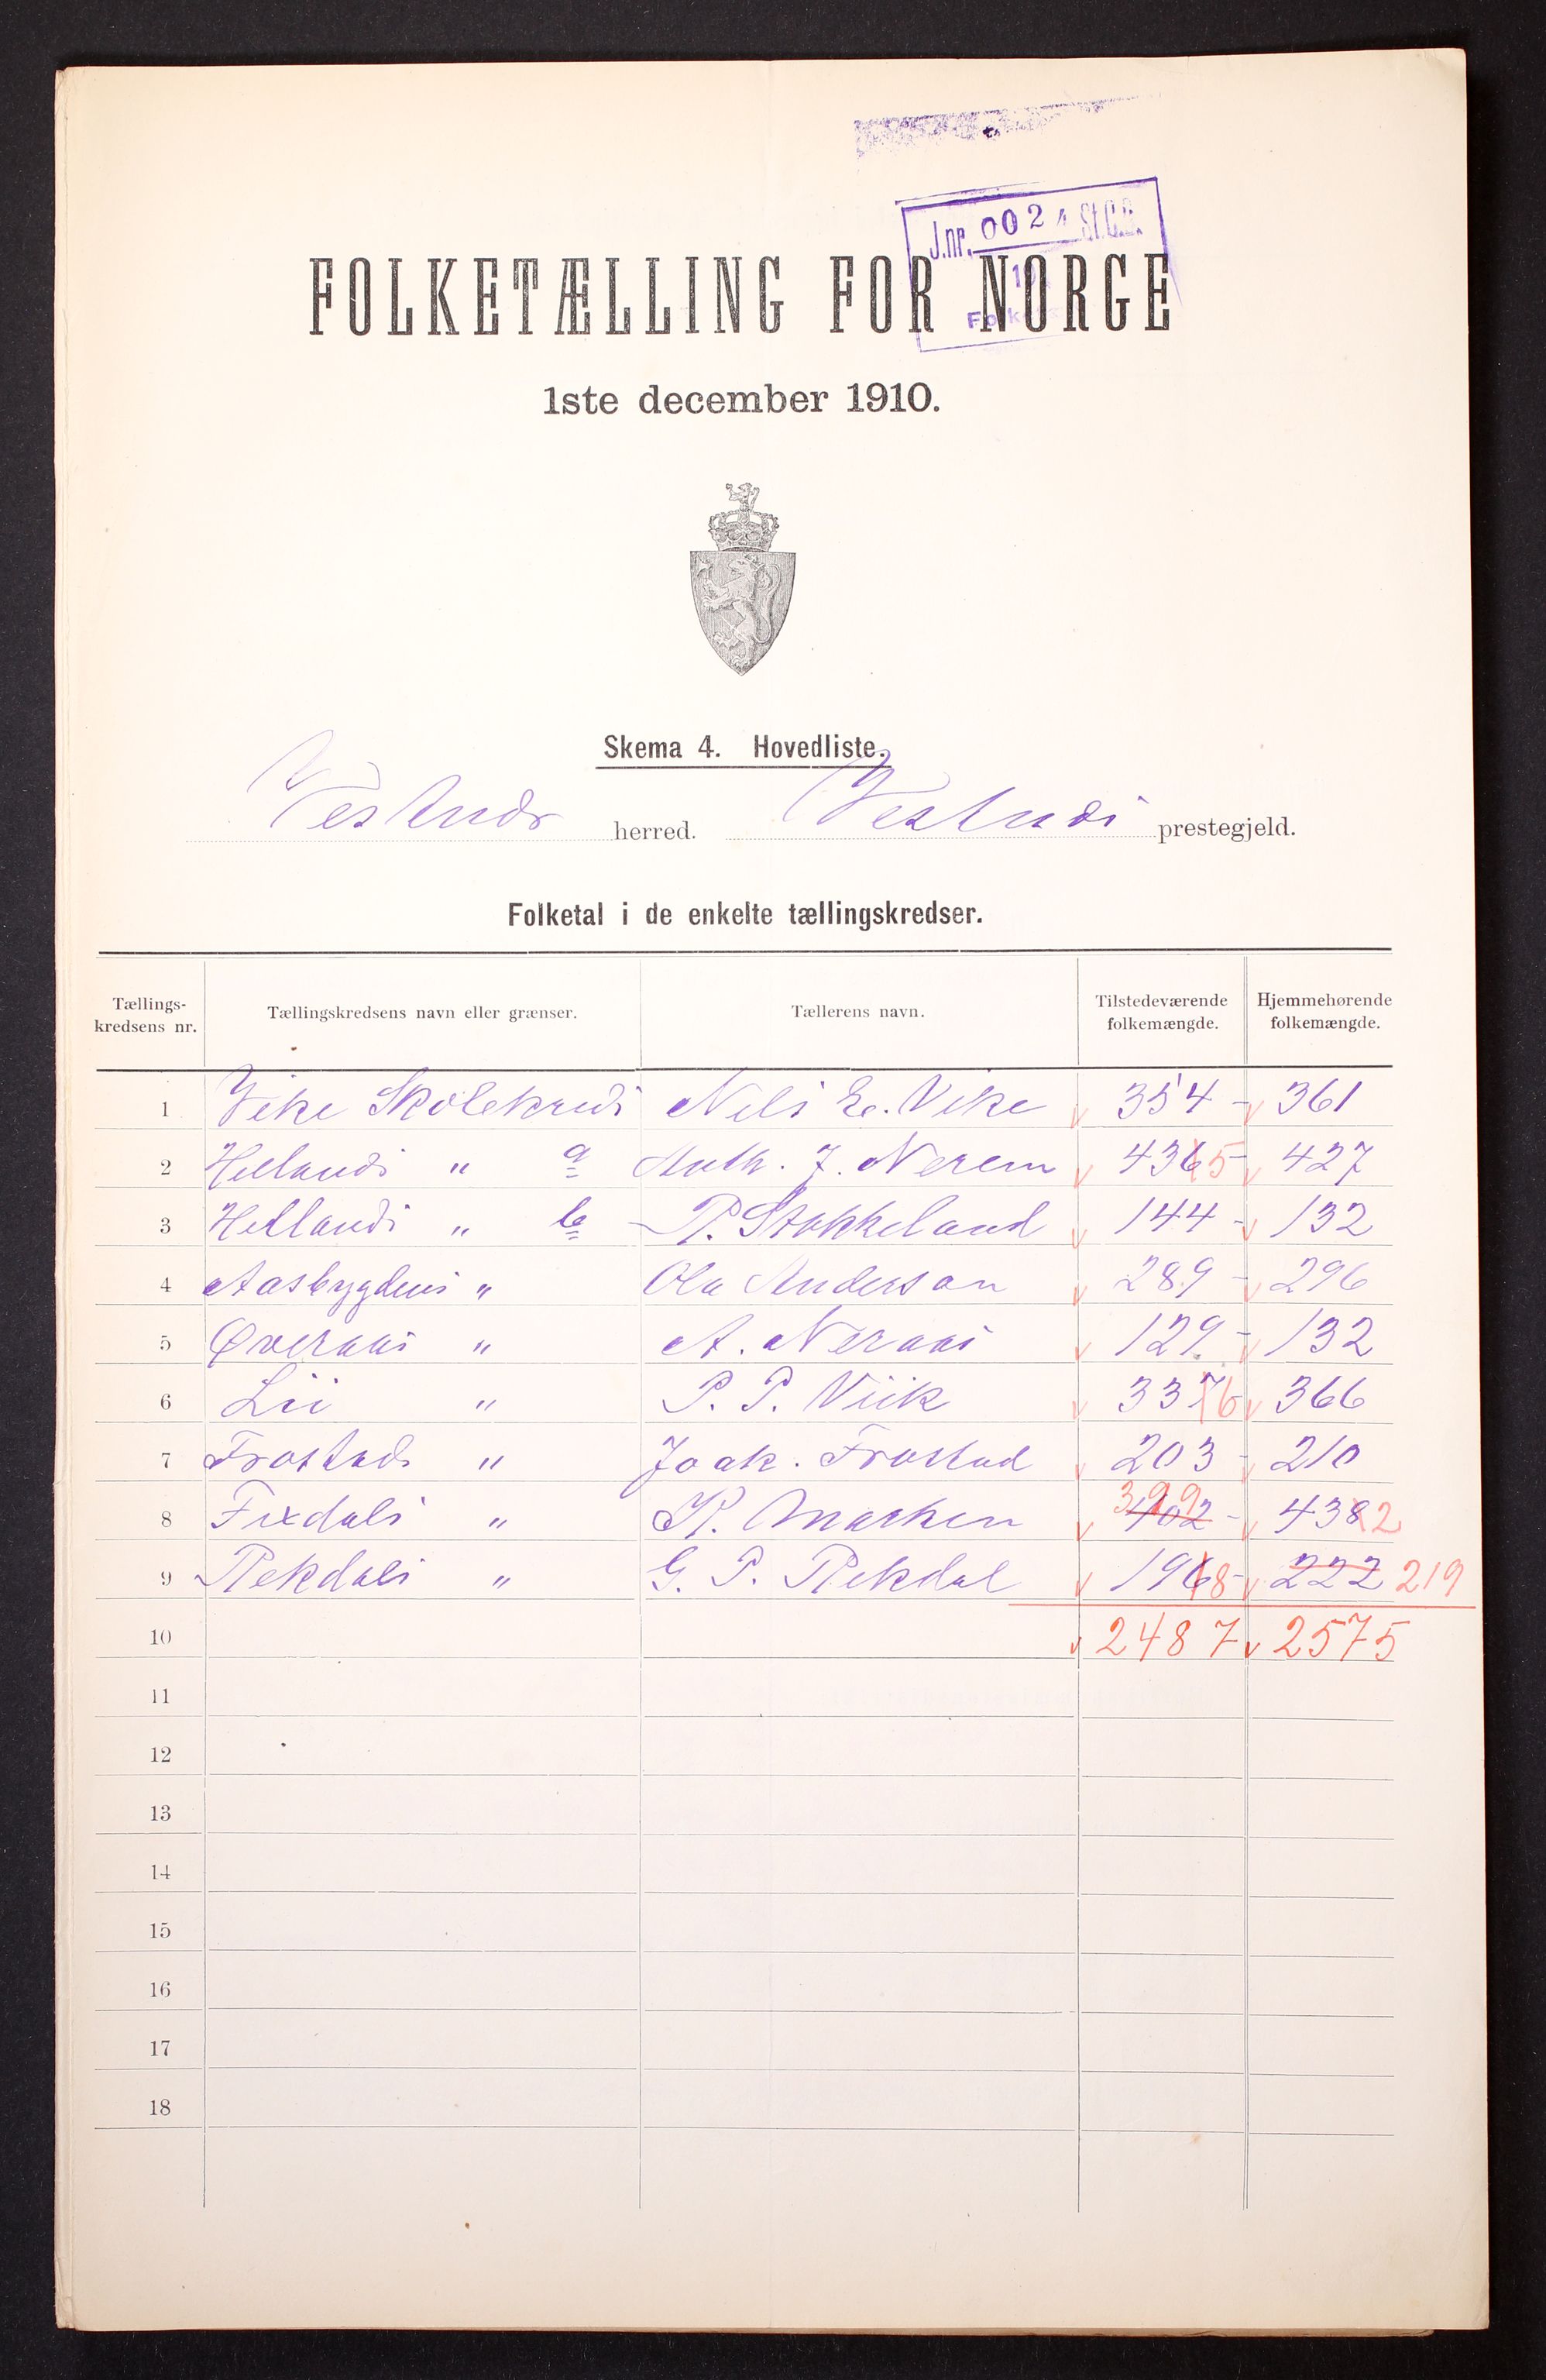 J.nr. 002 St.C.B.
FOLKETÆLLING FOR NORGE
1ste december 1910.
Skema 4. Hovedliste.
Vestnes herred. Vestnes prestegjeld.
Folketal i de enkelte tællingskredser.
Tællings-kredsens nr. Tællingskredsens navn eller grænser. Tællerens navn. Tilstedeværende folkemængde. Hjemmehørende folkemængde.
1 Vike Skolekreds Nils E. Vike 354 - 361
2 Hellands " a Anth. J. Nerem 436 5 - 427
3 Hellands " b P. Stokkeland 144 - 132
4 Aasbygdens " Ole Anderson 289 - 296
5 Øveraas " A. Neraas 129 - 132
6 Lii " P. P. Viik 337 6 366
7 Frostads " Joak. Frostad 203 - 210
8 Fixdals " K. Marken 402 399 - 438 2
9 Rekdals " G. P. Rekdal 196 8 - 222 219
10 2487 2575
11
12
13
14
15
16
17
18